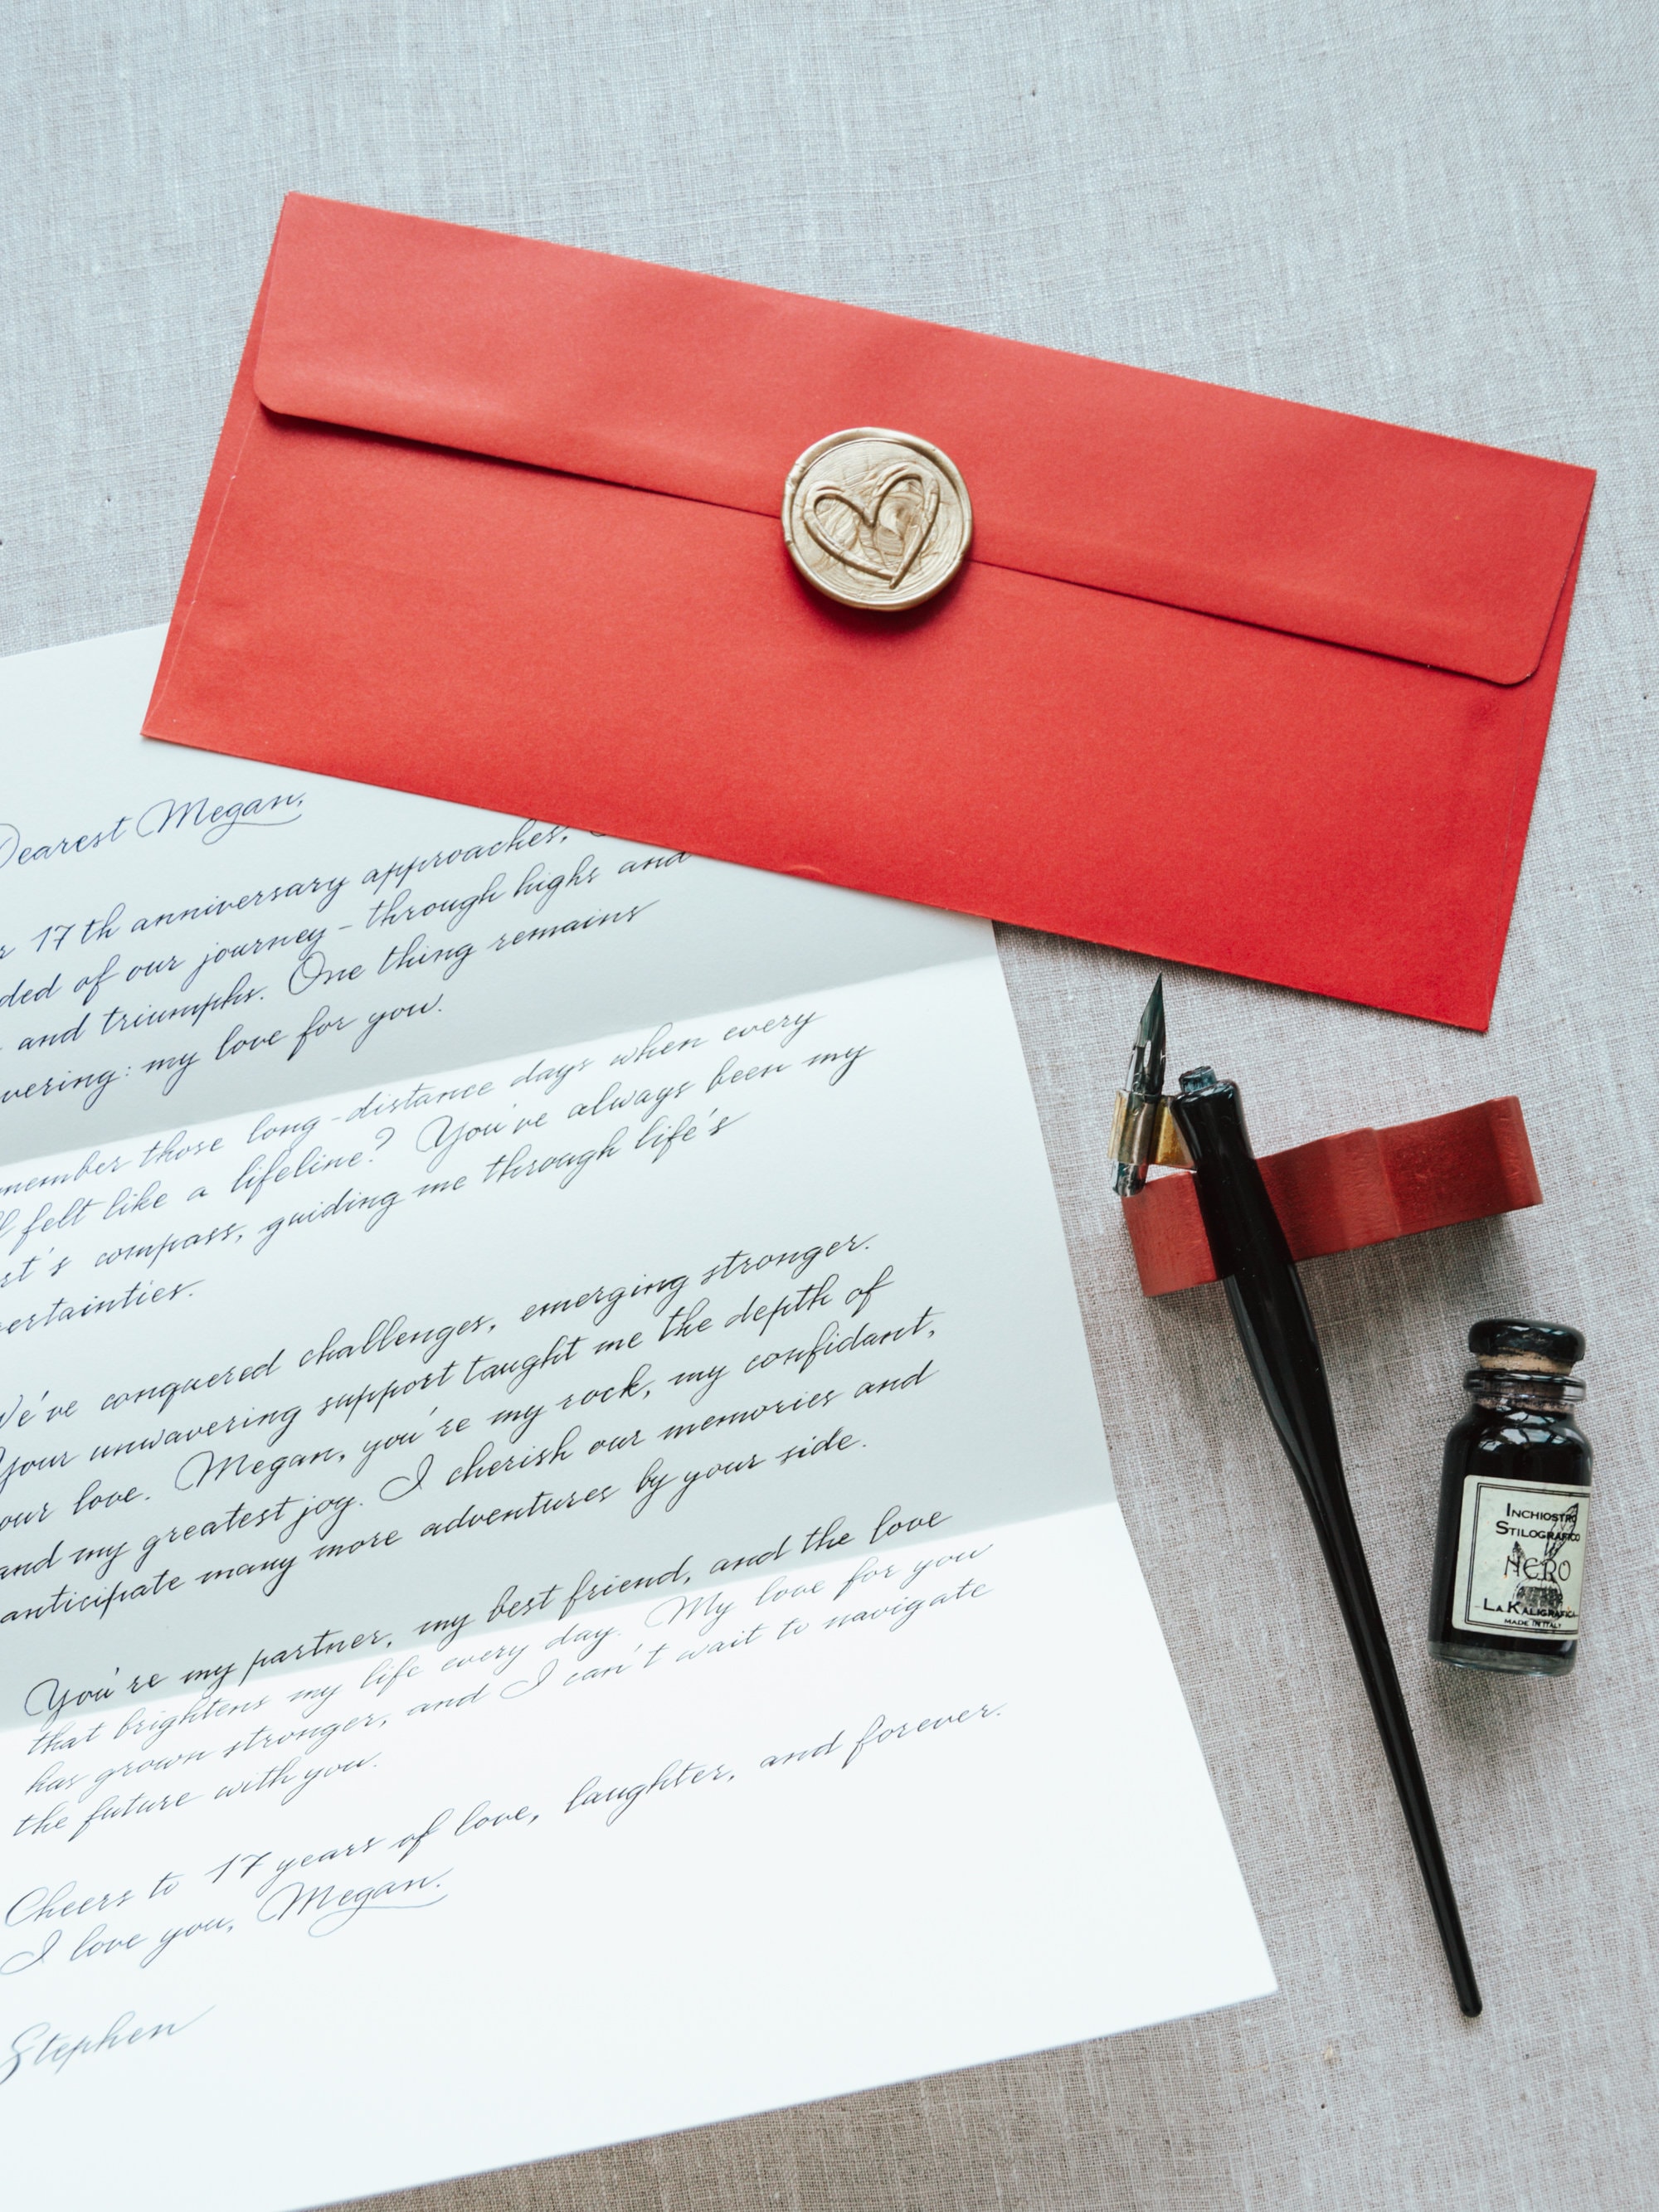 Dearest Megan,
17th anniversary approaches,
of our journey - through highs and
and triumphs. One thing remains
my love for you.
those long-distance days when every
felt like a lifeline? You've always been my
compass, guiding me through life's
We've conquered challenges, emerging stronger.
Your unwavering support taught me the depth of
our love. Megan, you're my rock, my confidant,
and my greatest joy. I cherish our memories and
anticipate many more adventures by your side.
You're my partner, my best friend, and the love
that brightens my life every day. My love for you
has grown stronger, and I can't wait to navigate
the future with you.
Cheers to 17 years of love, laughter, and forever.
I love you, Megan.
Stephen
INCHIOSTRO
STILOGRAFICO
NERO
LA KALIGRAFICA
MADE IN ITALY